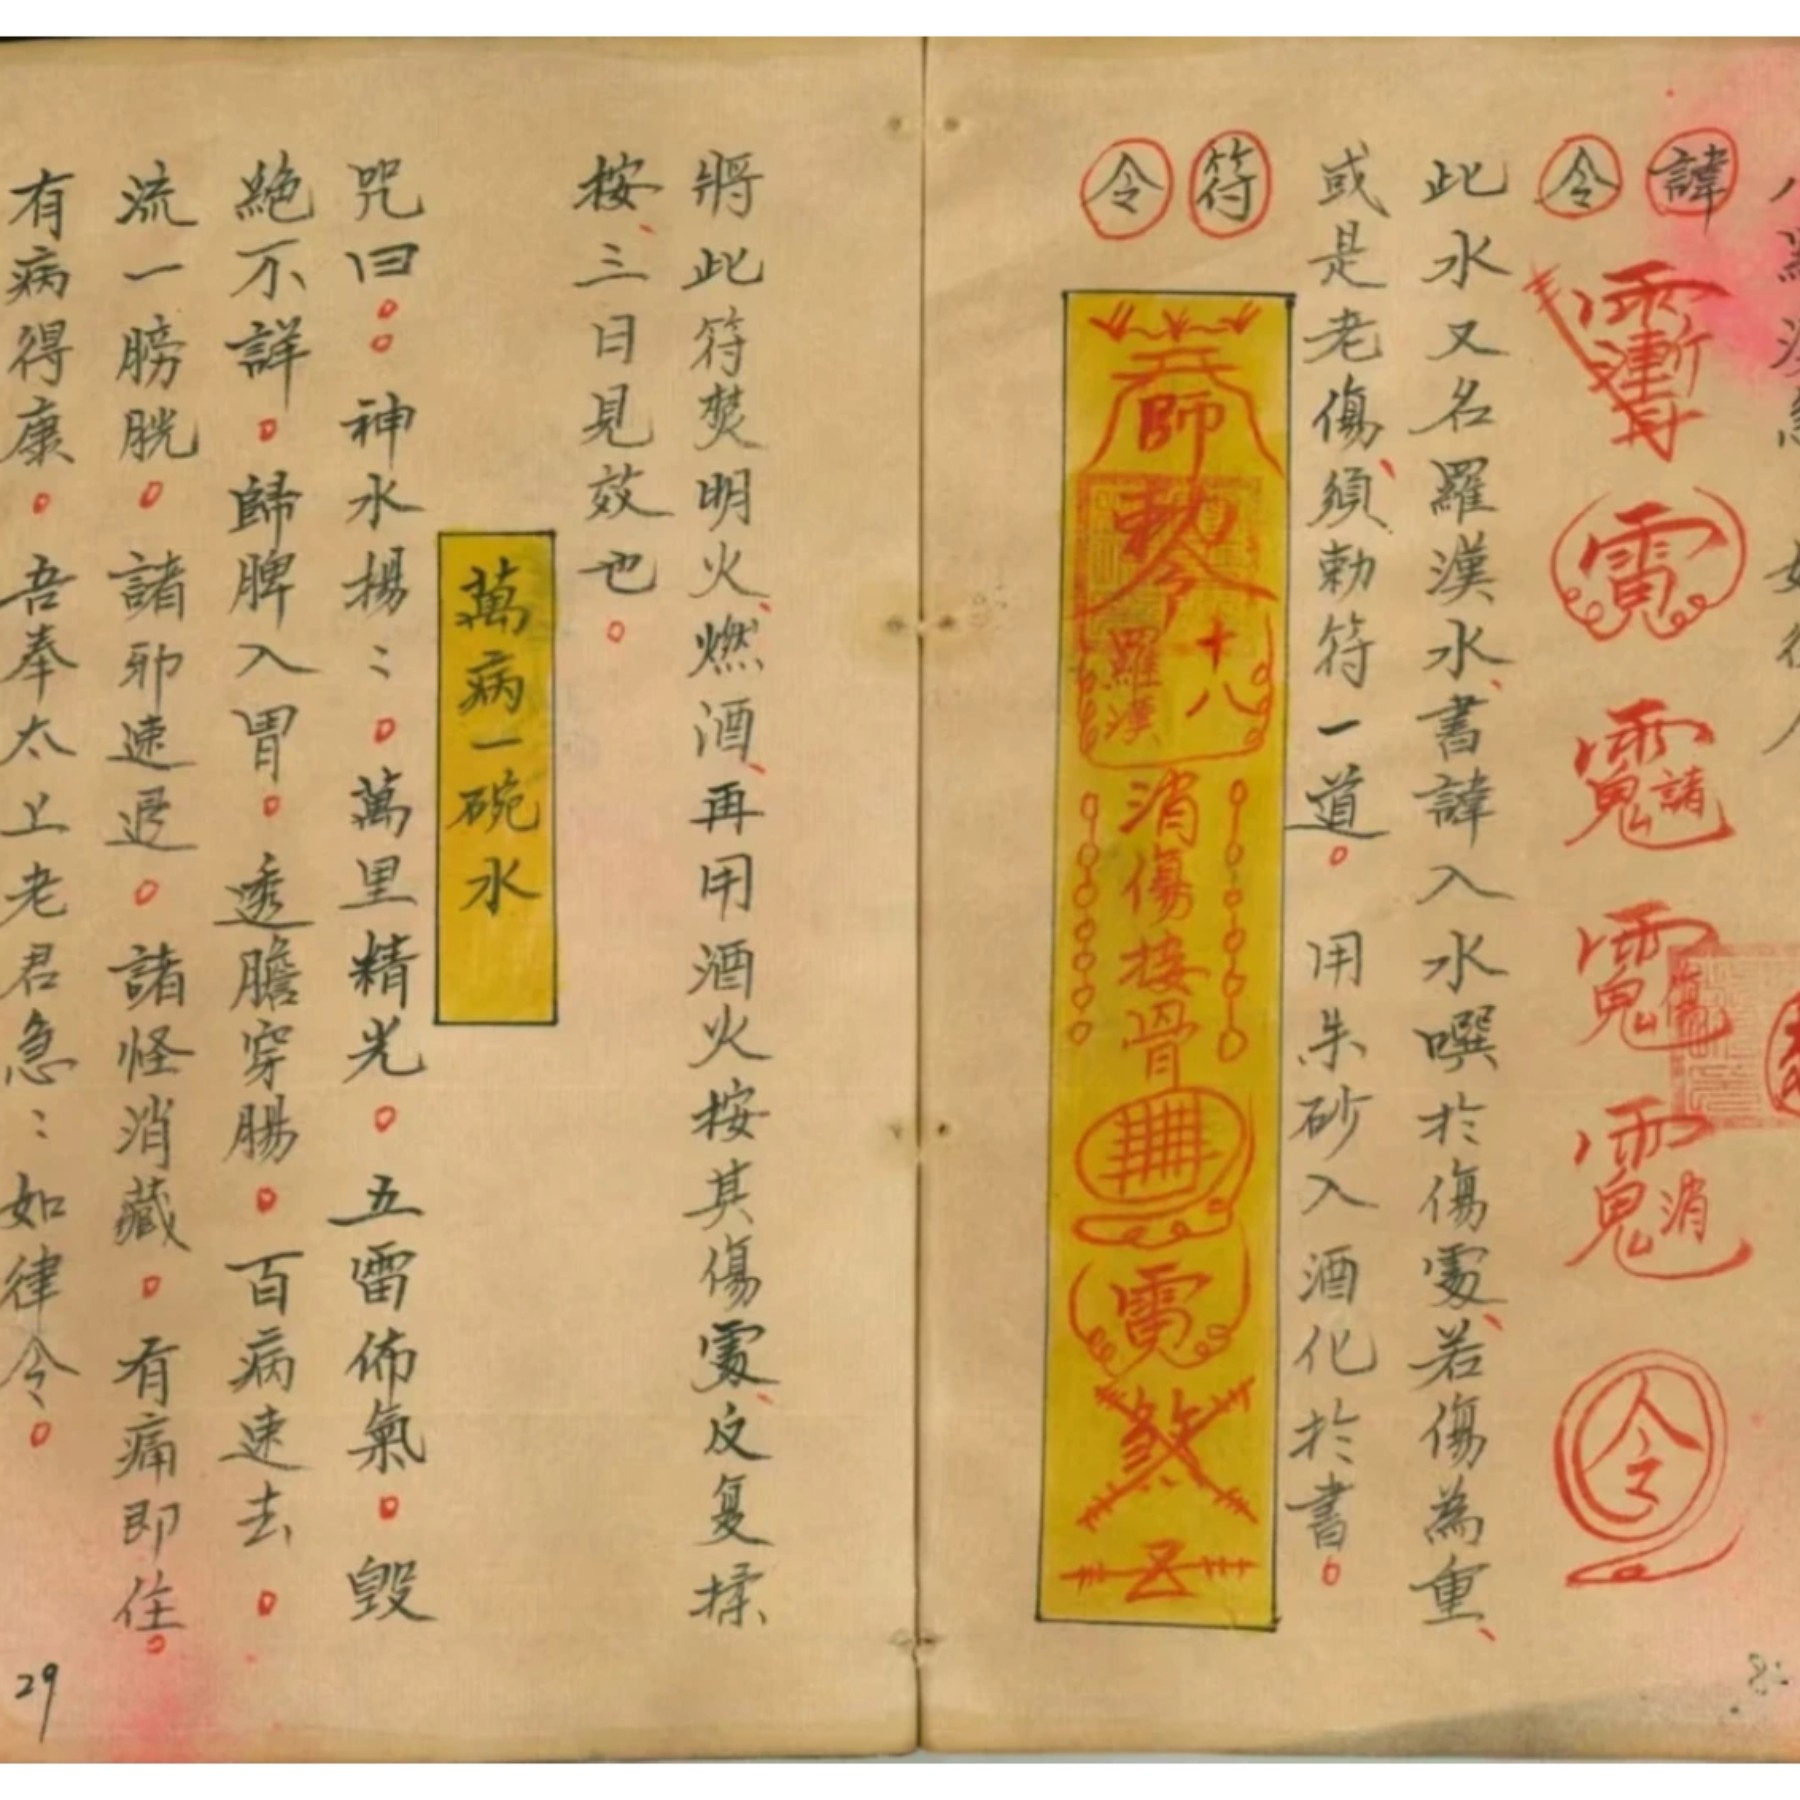 諱 令
此水又名羅漢水、書諱入水噀於傷處、若傷為重、
或是老傷、須勅符一道。用朱砂入酒化於書。
符 令
師
勅令
十八
羅漢
消傷接骨
將此符焚明火、燃酒、再用酒火按其傷處、反复揉
按、三日見效也。
萬病一碗水
咒曰。。神水楊〻。萬里精光。五雷佈氣。毀
絶不詳。歸脾入胃。透膽穿腸。百病速去。
流一膀胱。諸邪速退。諸怪消藏。有痛即住。
有病得康。吾奉太上老君急〻如律令。
29